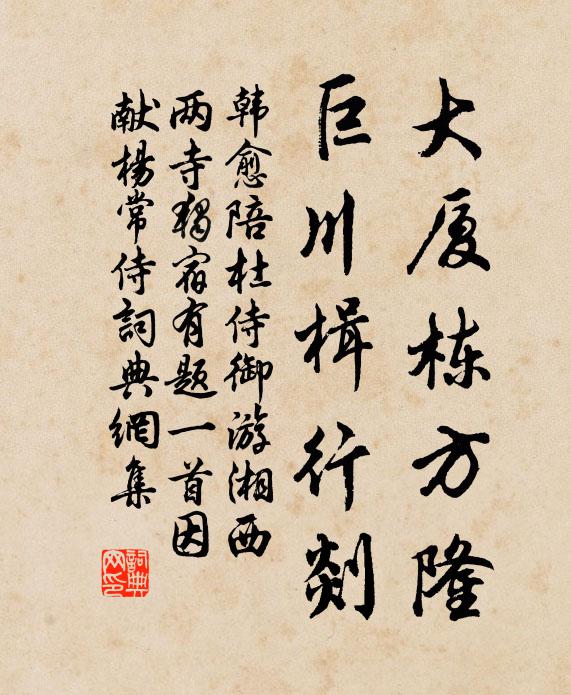 大厦栋方隆
巨川楫行剡
韩愈陪杜侍御游湘西
两寺独宿有题一首因
献杨常侍詞典網集
詞典網印